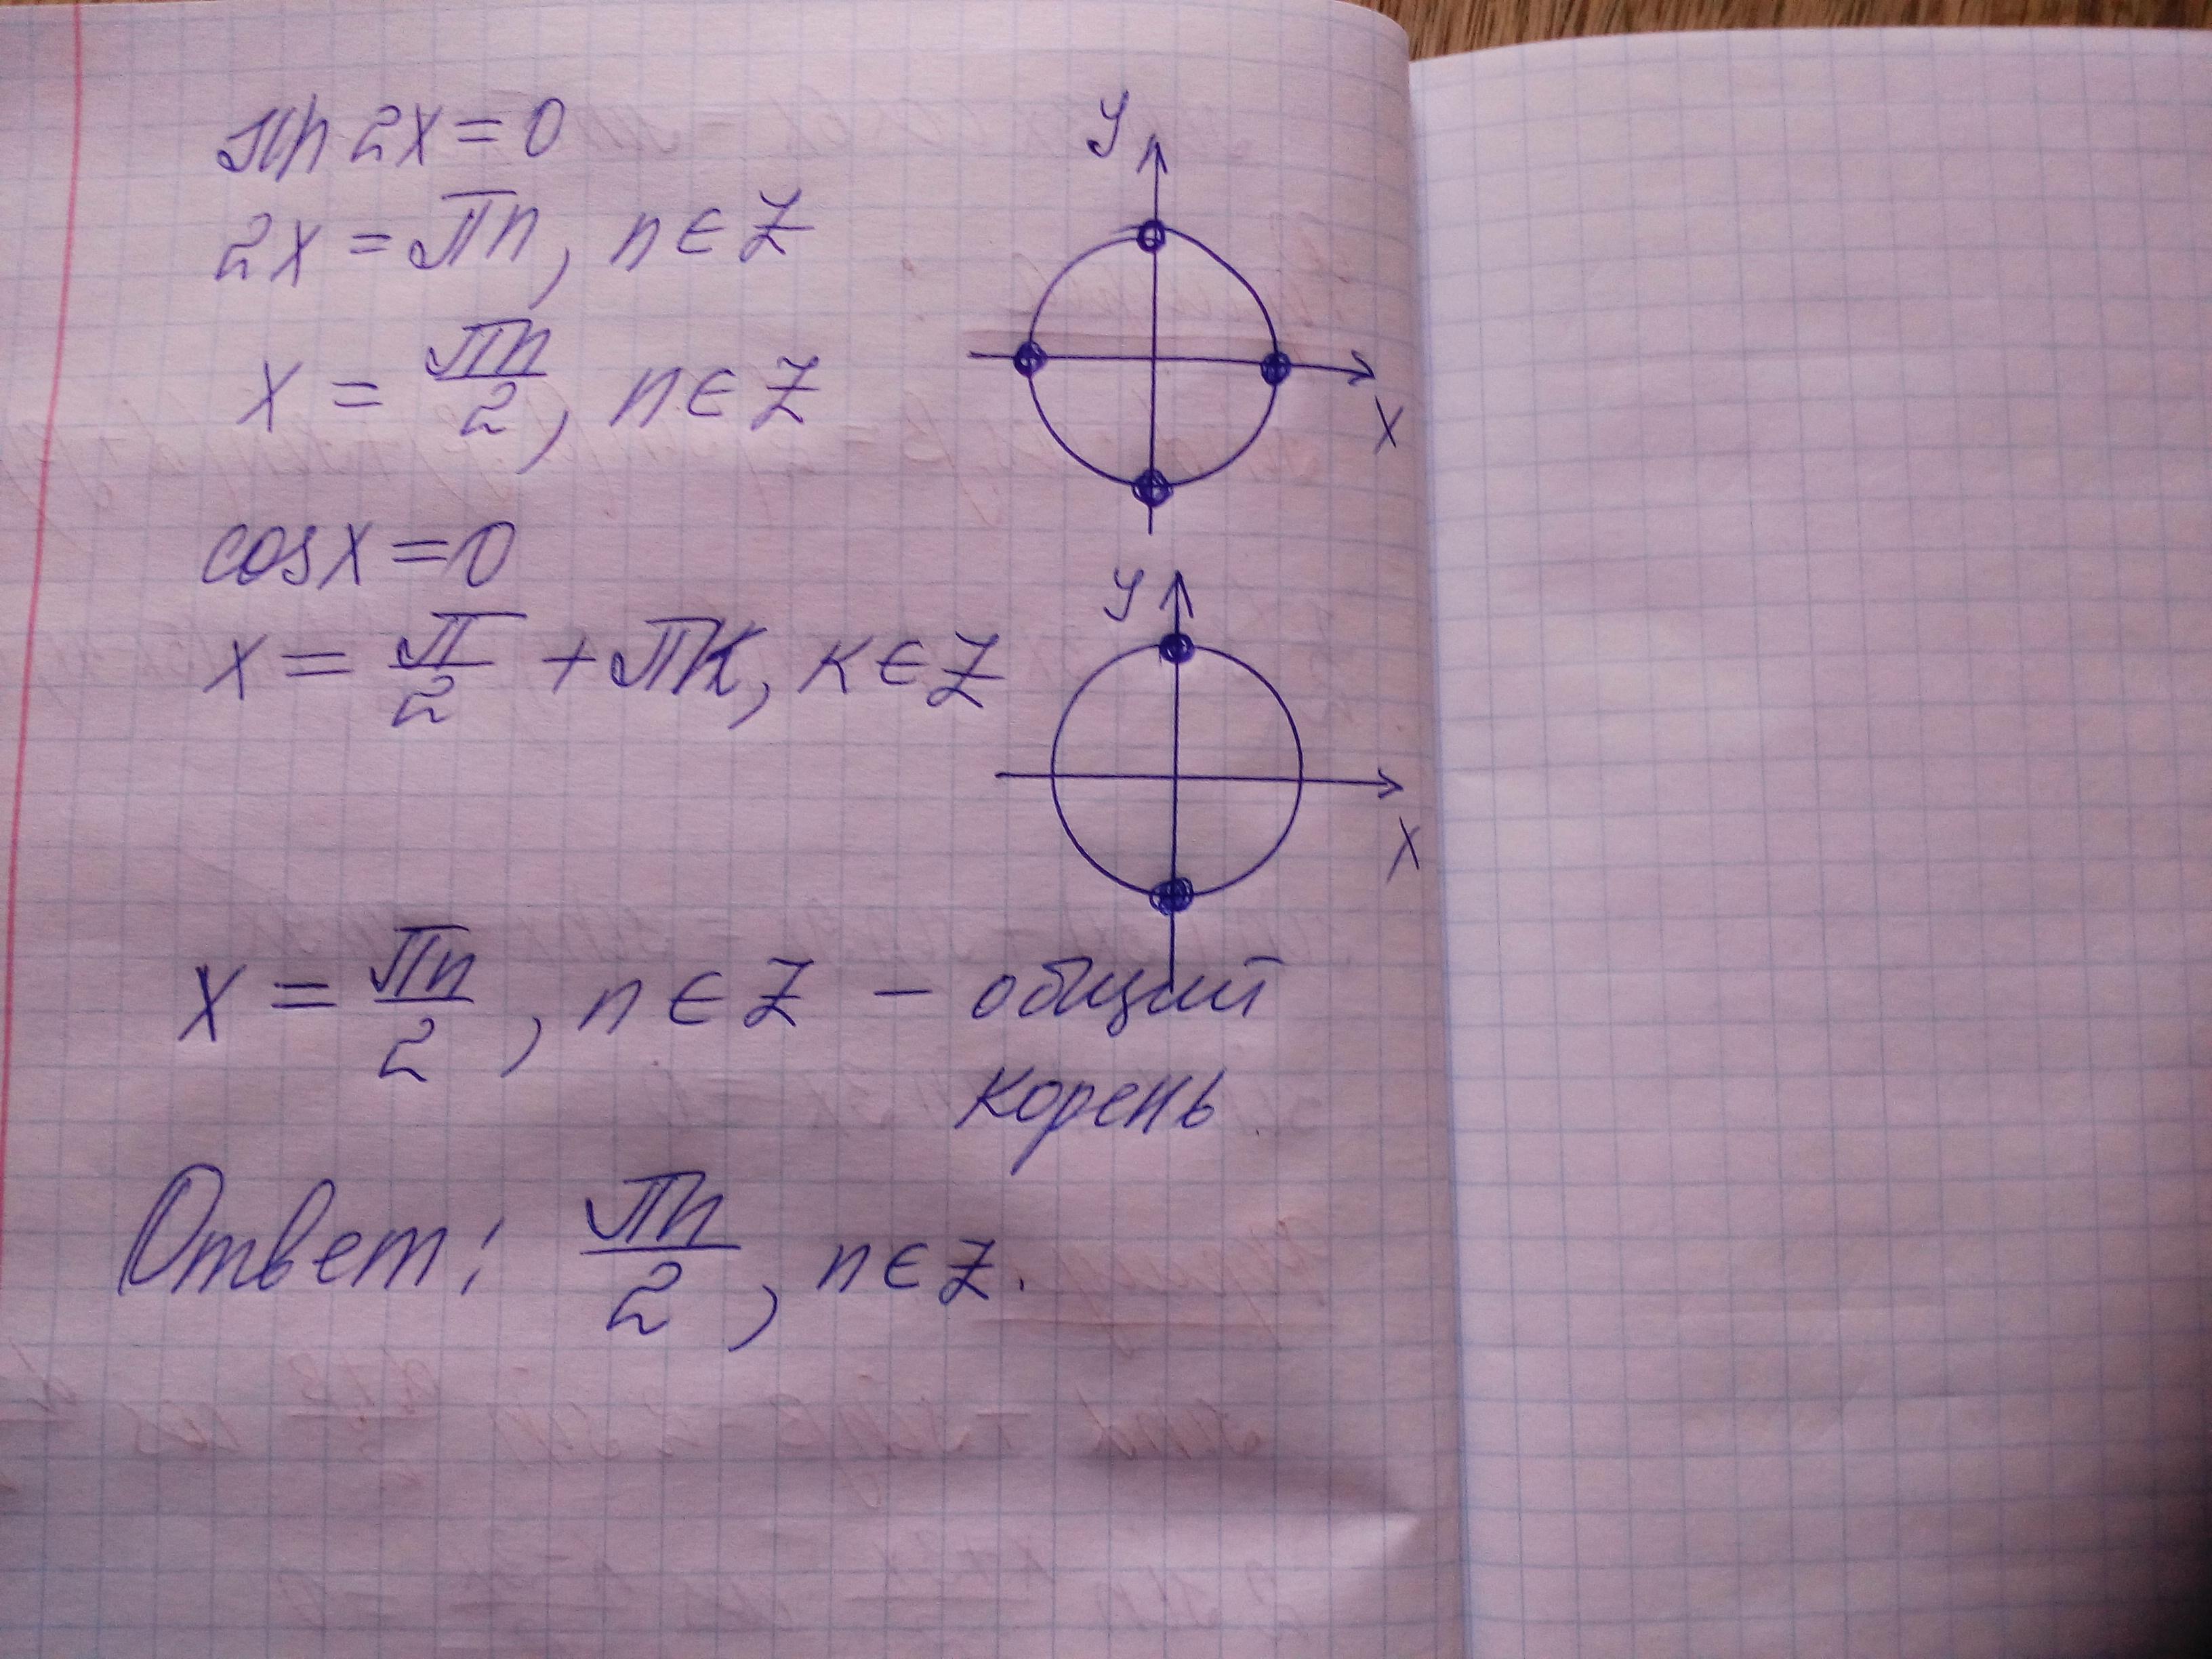 sin 2x = 0
2x = πn, n ∈ Z
x = πn/2, n ∈ Z
y
x
cos x = 0
x = π/2 + πк, к ∈ Z
y
x
x = πn/2, n ∈ Z – общий
корень
Ответ: πn/2, n ∈ Z.